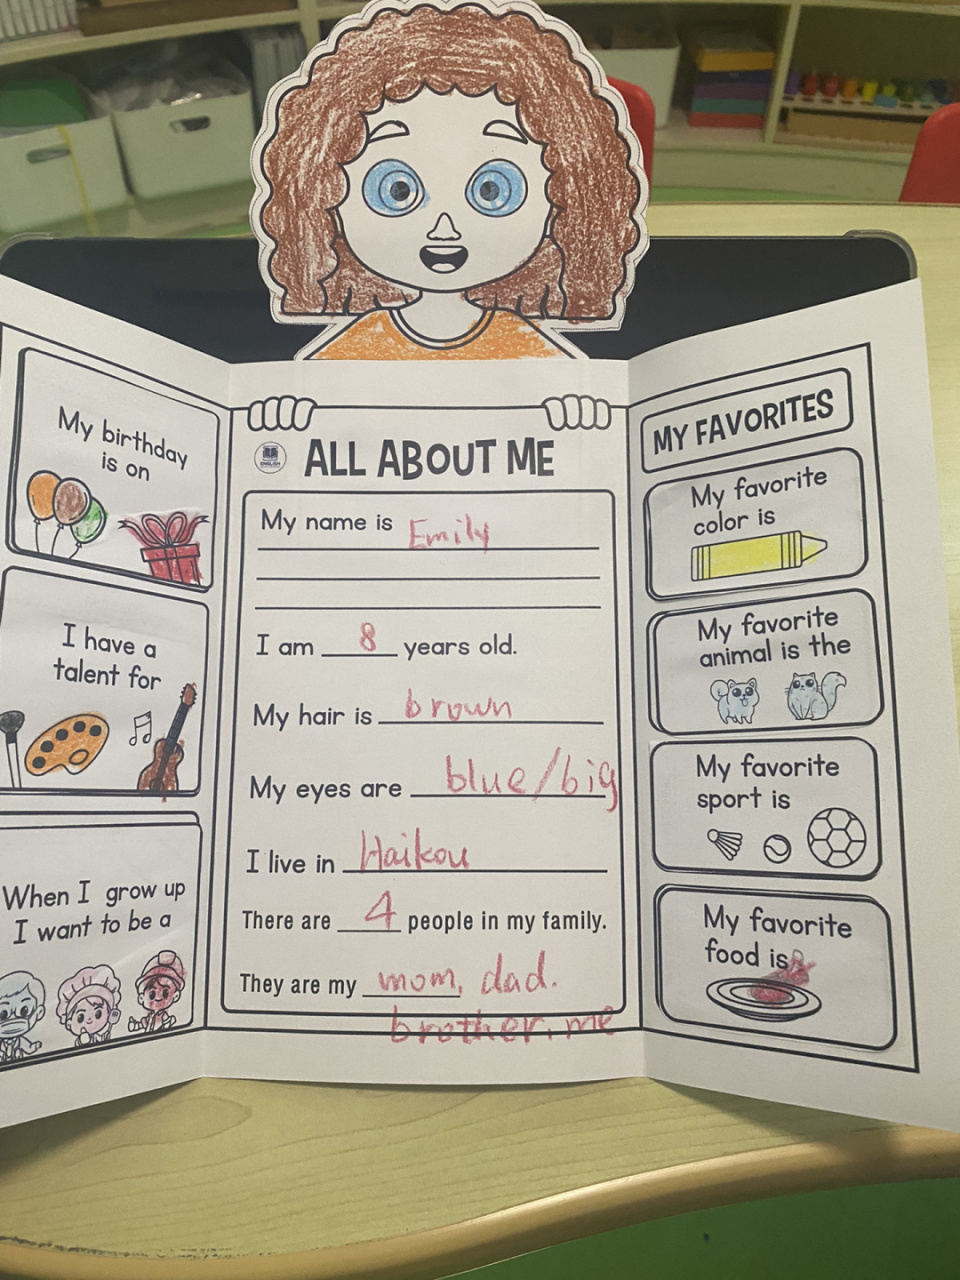 My birthday
is on
I have a
talent for
When I grow up
I want to be a
ENGLISH
ALL ABOUT ME
My name is Emily
I am 8 years old.
My hair is brown
My eyes are blue/big
I live in Haikou
There are 4 people in my family.
They are my mom, dad.
brother, me
MY FAVORITES
My favorite
color is
My favorite
animal is the
My favorite
sport is
My favorite
food is